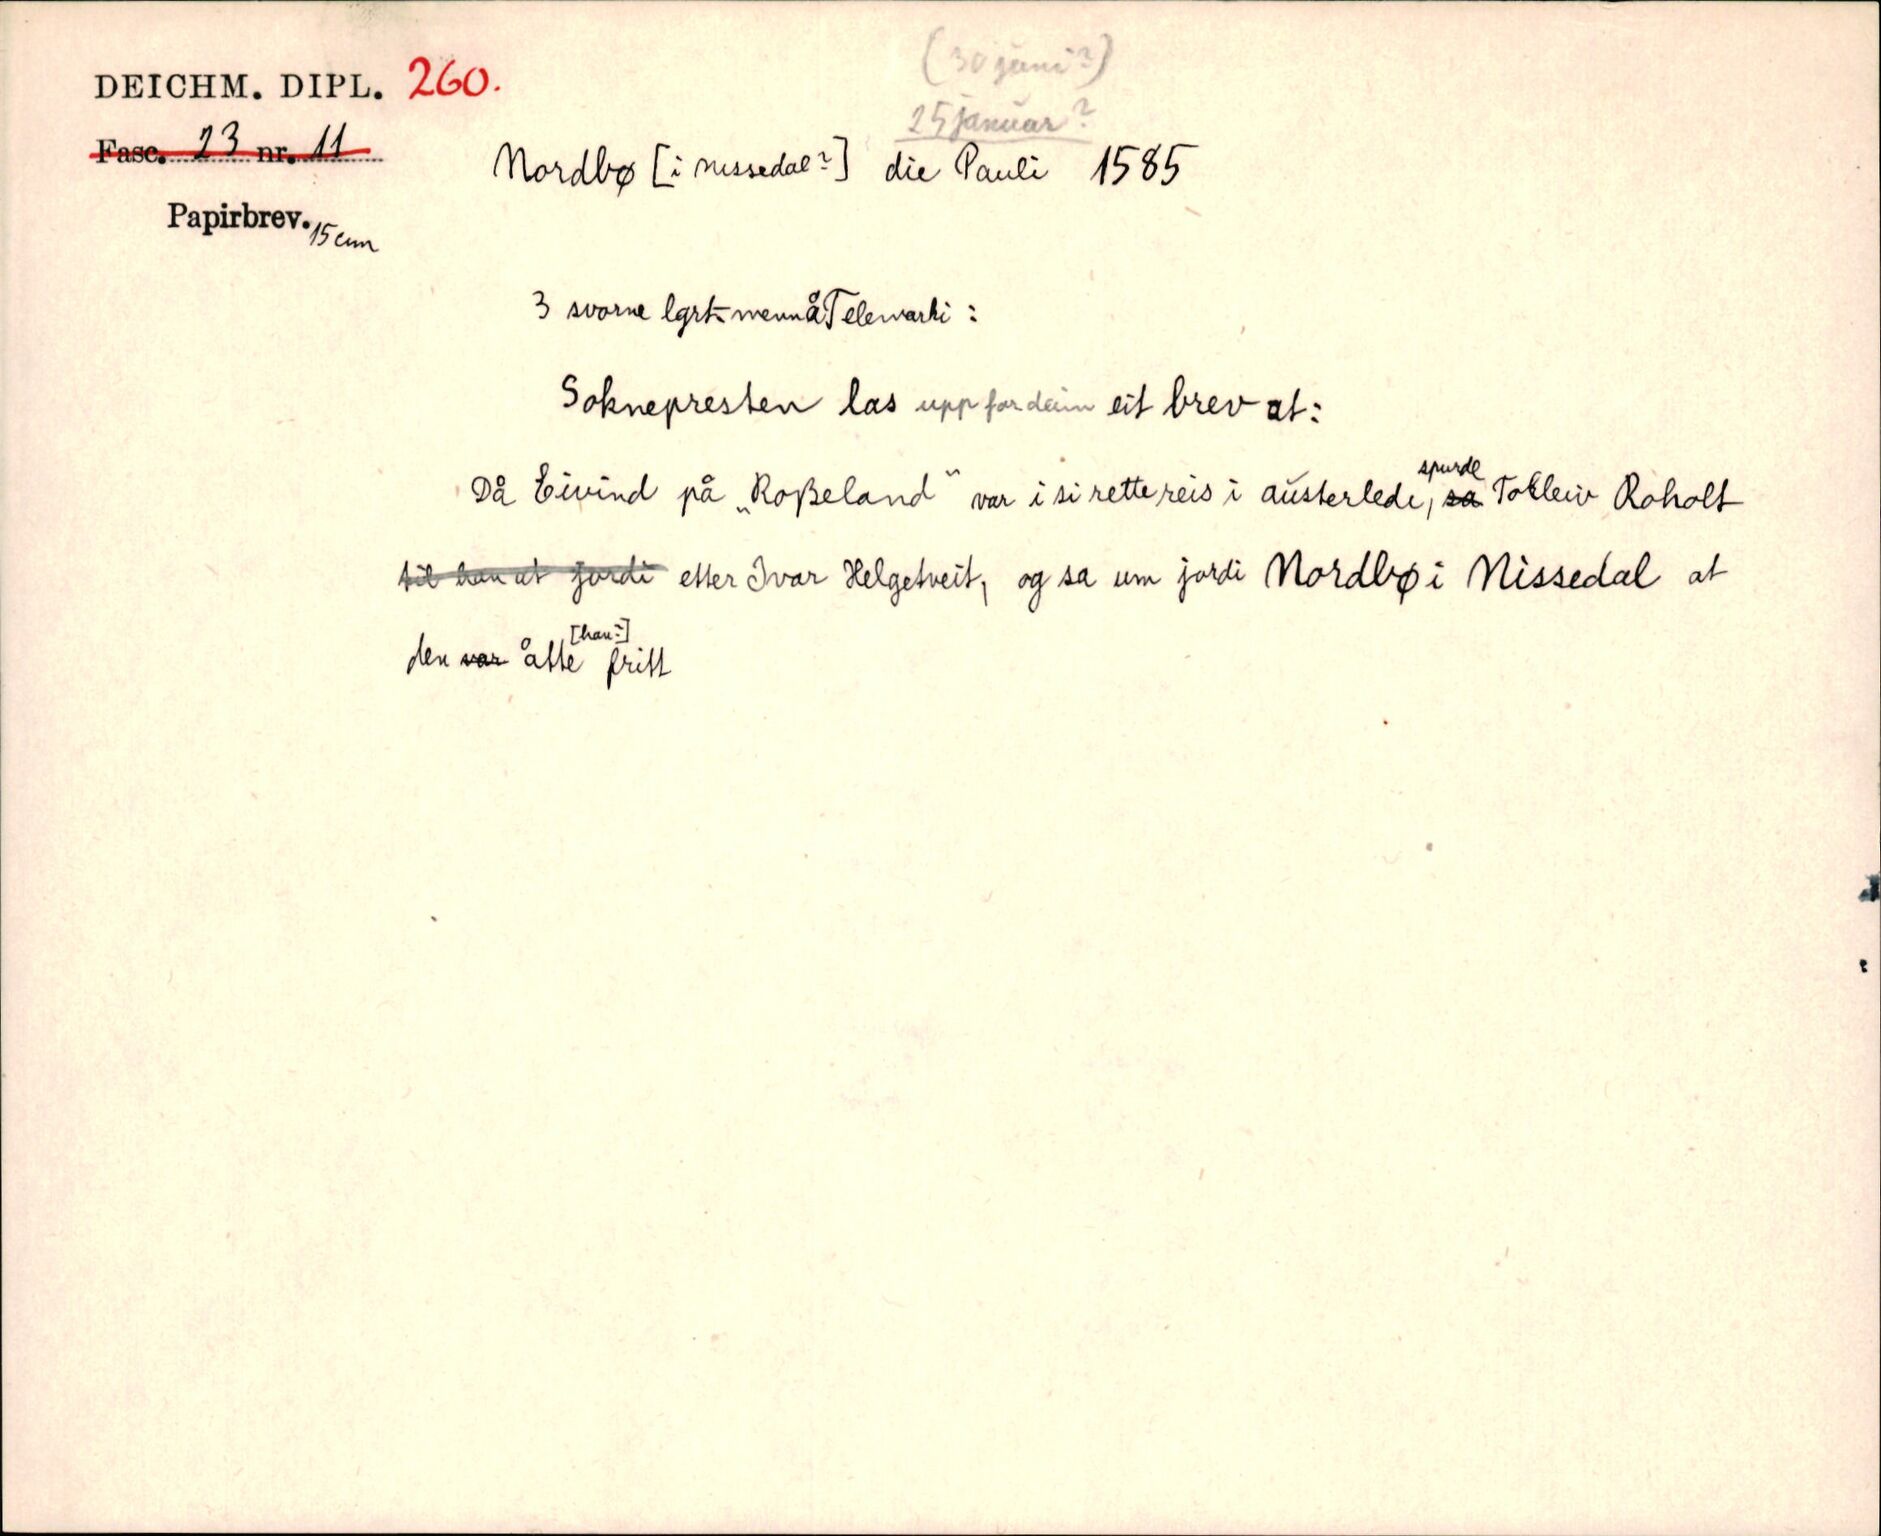 (30 juni?)
DEICHM. DIPL. 260.
25 januar?
Fasc. 23 nr. 11
Nordbø [i Nissedal?] die Pauli 1585
Papirbrev. 15 cm
3 svorne lgrt-menn å Telemarki:
Soknepresten las upp for deim eit brev at:
Då Eivind på „Roßeland“ var i si rette reis i austerlede, spurde sa Tolleiv Roholt
til han at jordi etter Ivar Helgetveit, og sa um jordi Nordbø i Nissedal at
den var åtte [han?] fritt